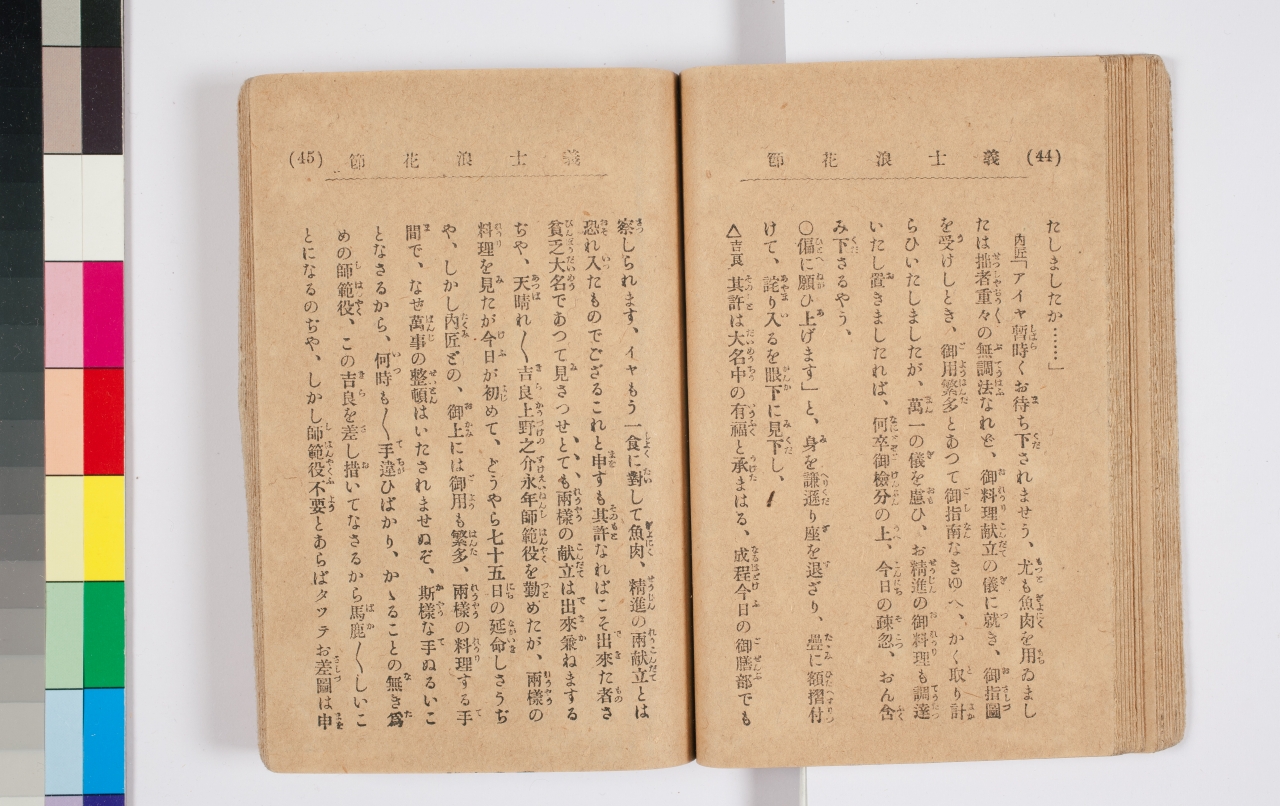 (44)
義士浪花節
たしましたか……」
内匠「アイヤ暫時くお待ち下されませう、尤も魚肉を用ゐまし
たは拙者重々の無調法なれど、御料理献立の儀に就き、御指圖
を受けしとき、御用繁多とあつて御指南なきゆへ、かく取り計
らひいたしましたが、萬一の儀を慮ひ、お精進の御料理も調達
いたし置きましたれば、何卒御檢分の上、今日の疎忽、おん含
み下さるやう、
〇偏に願ひ上げます」と、身を謙遜り座を退ざり、疊に額摺付
けて、詫り入るを眼下に見下し、
△吉良 其許は大名中の有福と承まはる、成程今日の御膳部でも
(45)
義士浪花節
察しられます、イヤもう一食に對して魚肉、精進の兩献立とは
恐れ入たものでござるこれと申すも其許なればこそ出來た者さ
貧乏大名であつて見さつせとても、兩樣の献立は出來兼ねまする
ぢや、天晴れ〱吉良上野之介永年師範役を勤めたが、兩樣の
料理を見たが今日が初めて、どうやら七十五日の延命しさうぢ
や、しかし内匠どの、御上には御用も繁多、兩樣の料理する手
間で、なぜ萬事の整頓はいたされませぬぞ、斯樣な手ぬるいこ
となさるから、何時も〱手違ひばかり、かゝることの無き爲
めの師範役、この吉良を差し措いてなさるから馬鹿〱しいこ
とになるのぢや、しかし師範役不要とあらばタツテお差圖は申